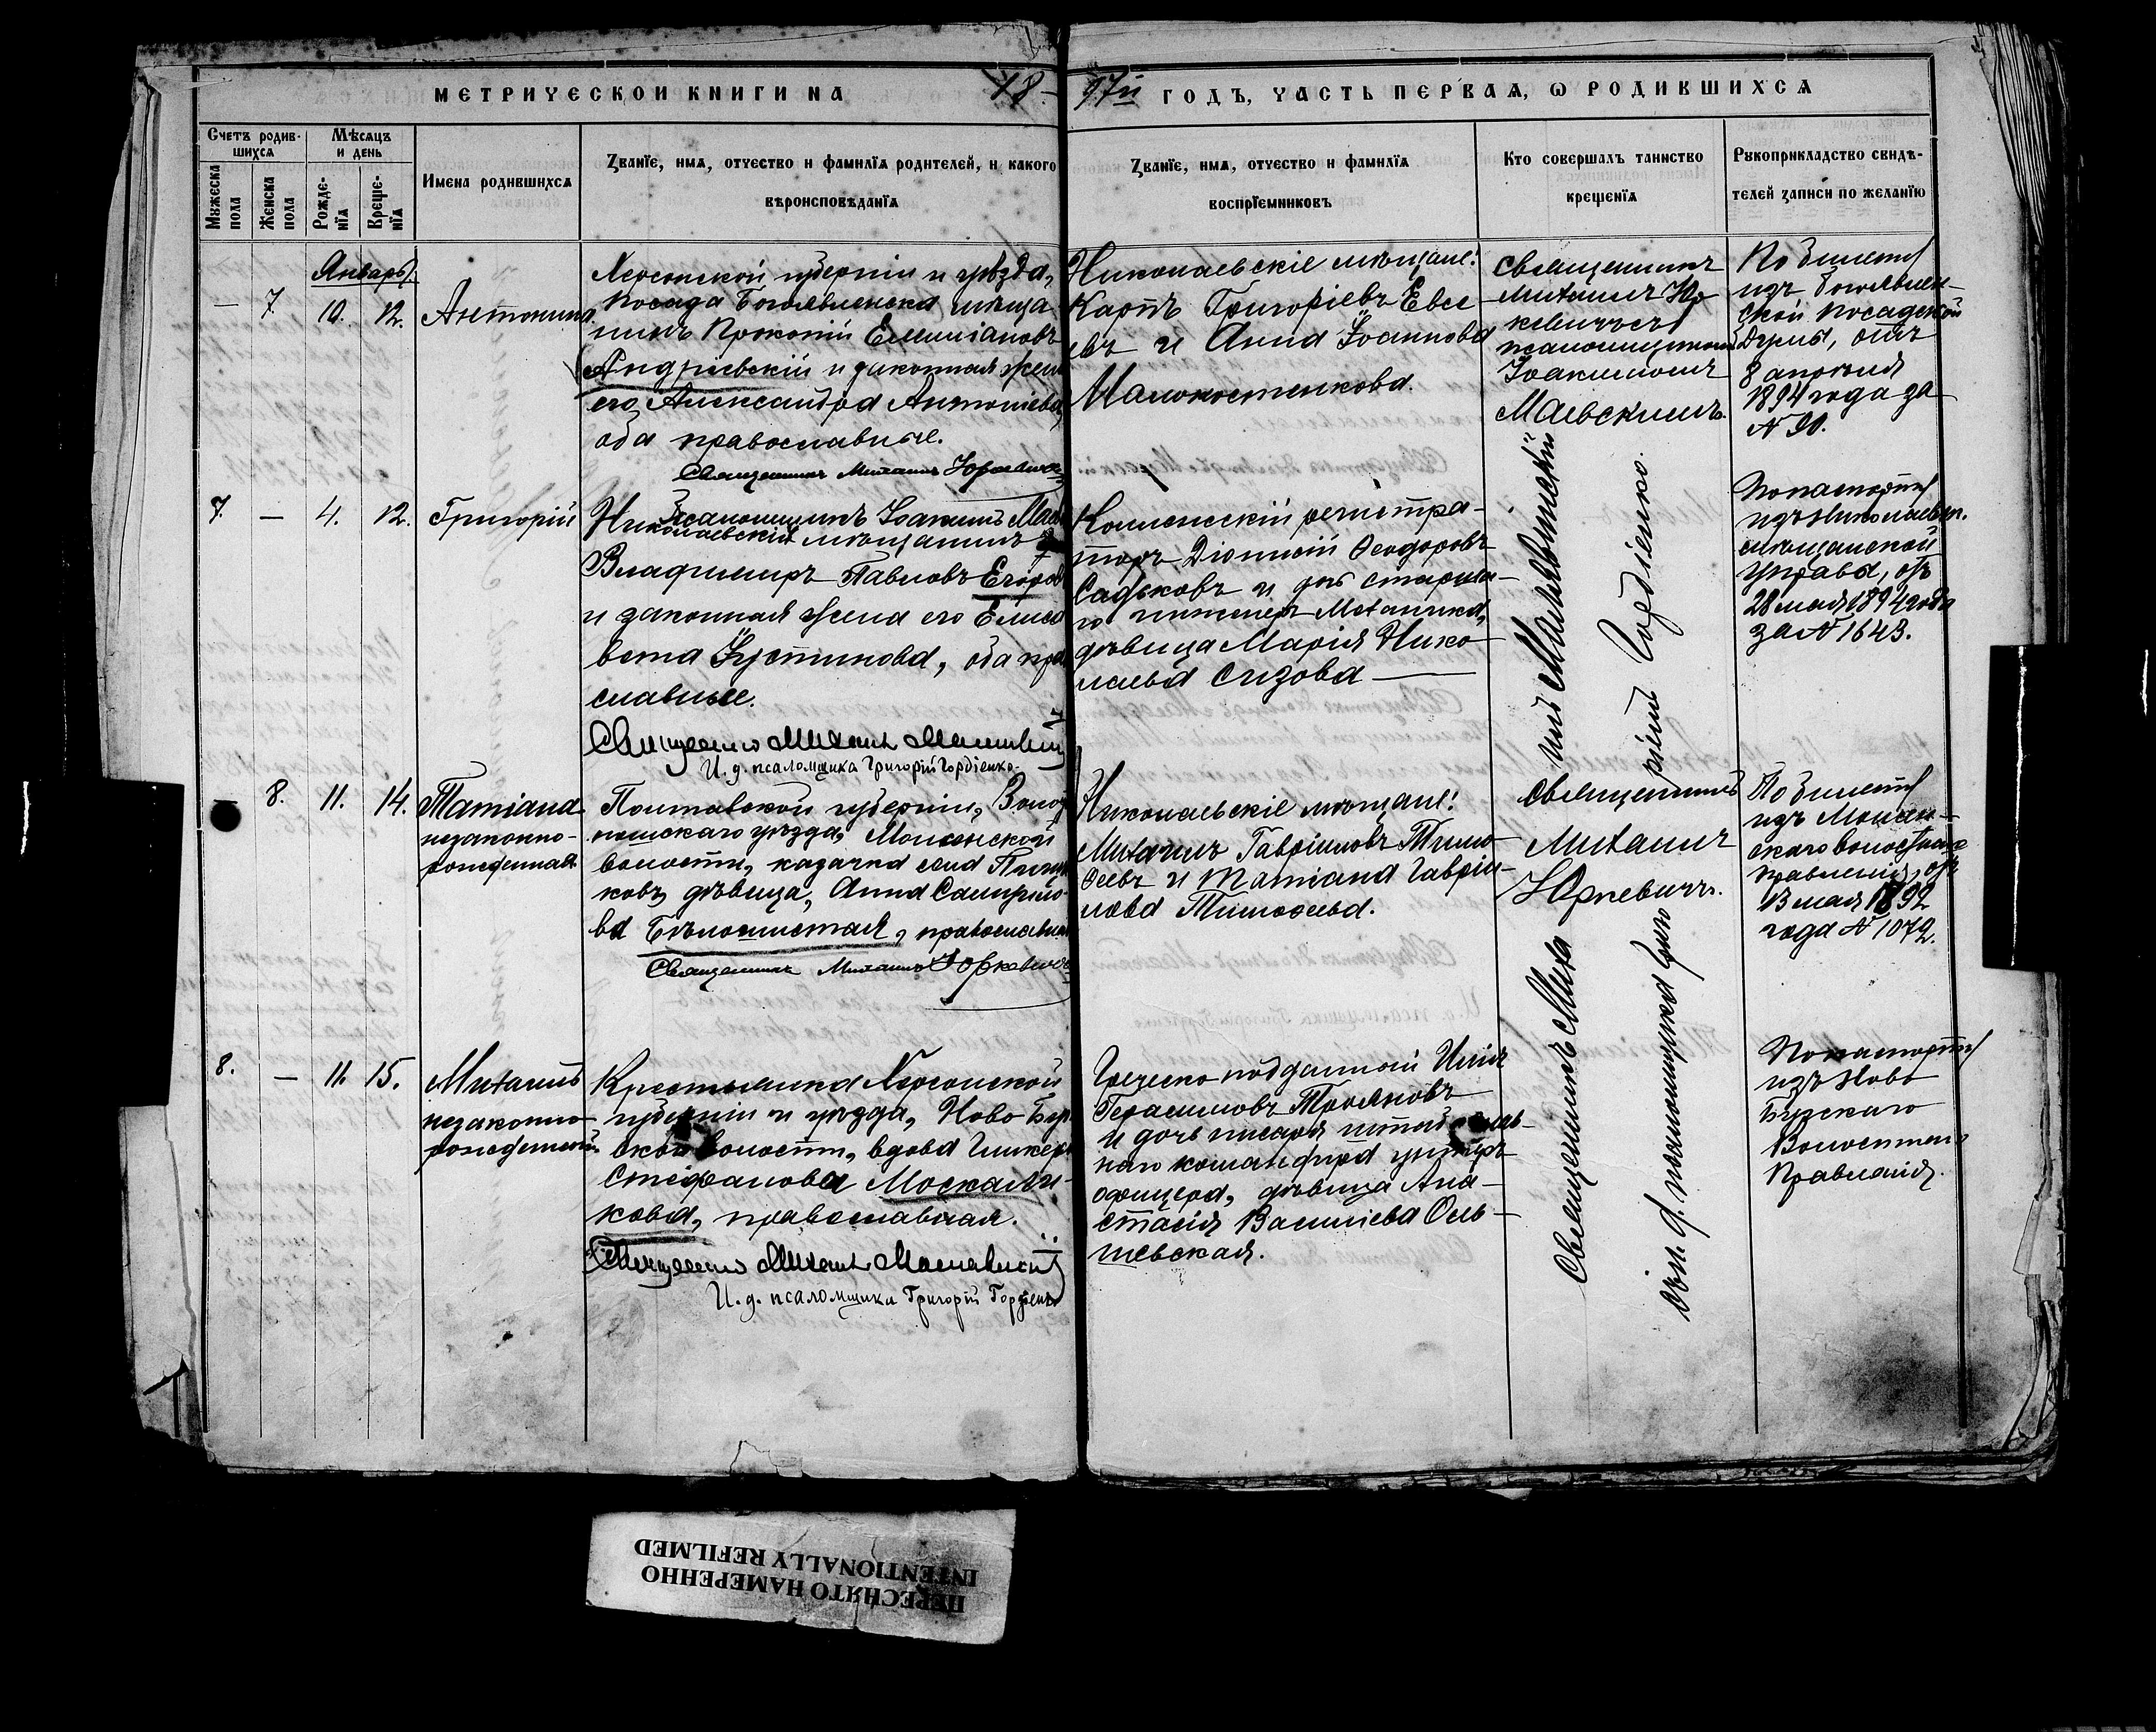 МЕТРИЧЕСКОЙ КНИГИ НА 18-
97й ГОДЪ, ЧАСТЬ ПЕРВАЯ, Ѡ РОДИВШИХСЯ
Счетъ родив-
шихся
Мужеска
пола
Женска
пола
Мѣсяцъ
и день
Рожде-
нїя
Креще-
нїя
Имена родившихся
Званїе, имя, отчество и фамилїя родителей, и какого
вѣроисповѣданїя
Званїе, имя, отчество и фамилїя
воспрїемниковъ
Кто совершалъ таинство
крещенїя
Рукоприкладство свидѣ-
телей записи по желанїю
Январь.
— 7. 10. 12. Антонина
Херсонской губерніи и уѣзда,
посада Богоявленска мѣща
нинъ Прокопій Емиліановъ
Андріевскій и законная жена
его Александра Антоніева,
оба православные.
Священникъ Михаилъ Юркевичъ
Псаломщикъ Іоакимъ
Николаевскіе мѣщане:
Карпъ Григоріевъ Евсе
евъ и Анна Іоаннова
Малокостенкова.
Священникъ
Михаилъ Юр
кевичъ съ
псаломщикомъ
Іоакимомъ
Маевскимъ.
По билету
изъ Богоявлен-
ской посадской
Думы, отъ
8 апрѣля
1894 года за
N 90.
7. — 4. 12. Григорій
Николаевскій мѣщанинъ
Владимиръ Павловъ Егоровъ
и законная жена его Елиса
вета Іустинова, оба пра
славные.
Священникъ Михаилъ
И. д. псаломщика Григорій Гордіенко.
Коллежскій регистра-
торъ Діонисій Ѳеодоровъ
Садьковъ и дочь старша-
го инженеръ механика,
дѣвица Марія Нико
лаева Сизова
Священникъ Миха
илъ
исп. д. псаломщика Григо
рій Гордіенко.
По паспорту
изъ Николаевск.
мѣщанской
управы, отъ
28 мая 1894 года
за N 1643.
— 8. 11. 14. Татіана
незаконно-
рожденная
Полтавской губерніи, Золот
ношскаго уѣзда,
волости, казачка села
ковъ, дѣвица, Анна
ва Бѣлошистая, православная
Священникъ Михаилъ Юркевичъ
Николаевскіе мѣщане:
Михаилъ Гавріиловъ Тимо
ѳеевъ и Татіана Гаврі-
лова Тимоѳеева.
Священникъ
Михаилъ
Юркевичъ.
По билету
изъ
скаго волостнаго
правленія, отъ
13 мая 1892
года N 1072.
8. — 11. 15. Михаилъ
незаконно-
рожденный.
Крестьянка Херсонской
губерніи и уѣзда, Ново Буг
ской волости, вдова Гликерія
Стефанова Москали-
кова, православная.
Священникъ Михаилъ
И. д. псаломщика Григорій Гордіенко
Греческо подданный Илія
Герасимовъ Трояновъ
и дочь писаря
наго командира унтеръ
офицера, дѣвица Ана-
стасія Василіева Оль-
шевская.
По паспорту
изъ Ново
Бугскаго
Волостнаго
Правленія.
ПЕРЕСНЯТО НАМЕРЕННО
INTENTIONALLY REFILMED